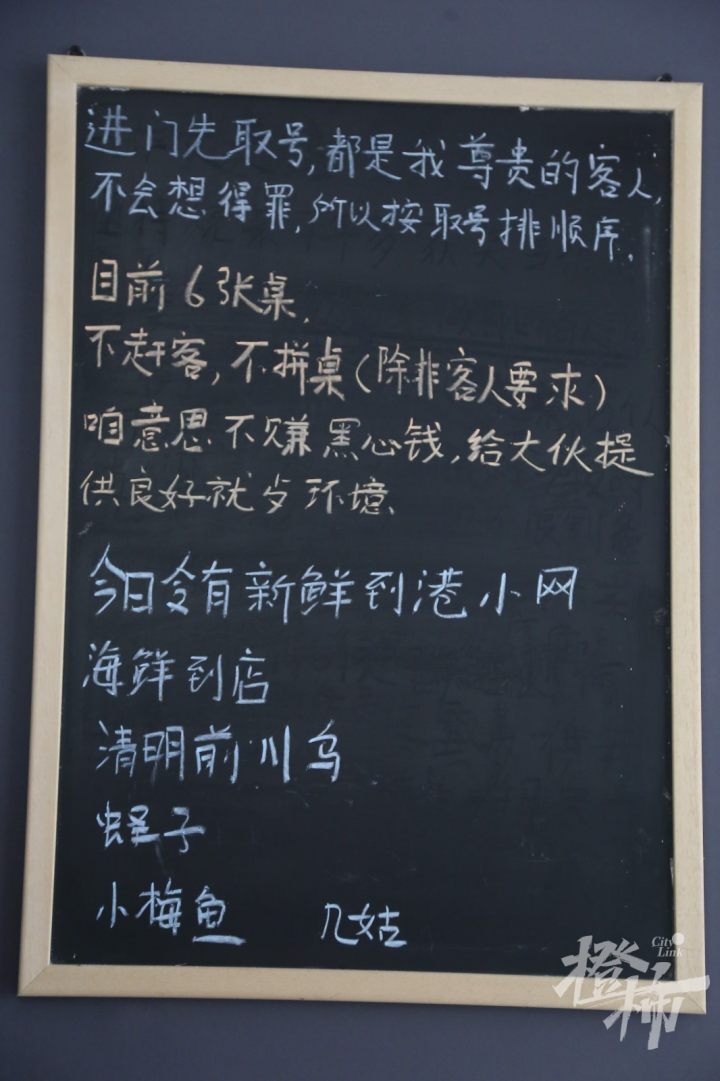 进门先取号,都是我尊贵的客人,
不会想得罪,所以按取号排顺序.
目前6张桌,
不赶客,不拼桌(除非客人要求)
咱意思不赚黑心钱,给大伙提
供良好就歺环境、
今日令有新鲜到港小网
海鲜到店
清明前川乌
蛏子
小梅鱼 几姑
City Link
橙柿